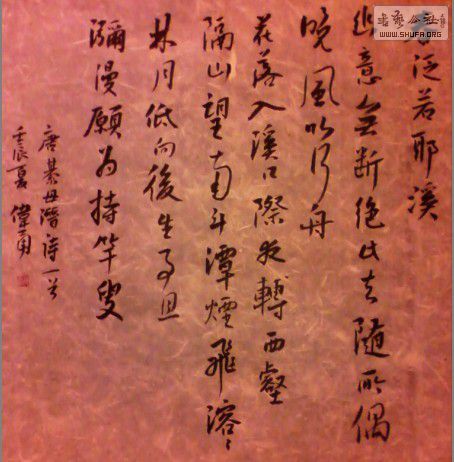 书艺公社
WWW.SHUFA.ORG
春泛若耶溪
幽意無斷絕此去隨所偶
晚風吹行舟
花落入溪口際夜轉西壑
隔山望南斗潭煙飛溶〻
林月低向後生事且
瀰漫願為持竿叟
唐綦毋潛詩一首
壬辰夏偉勇